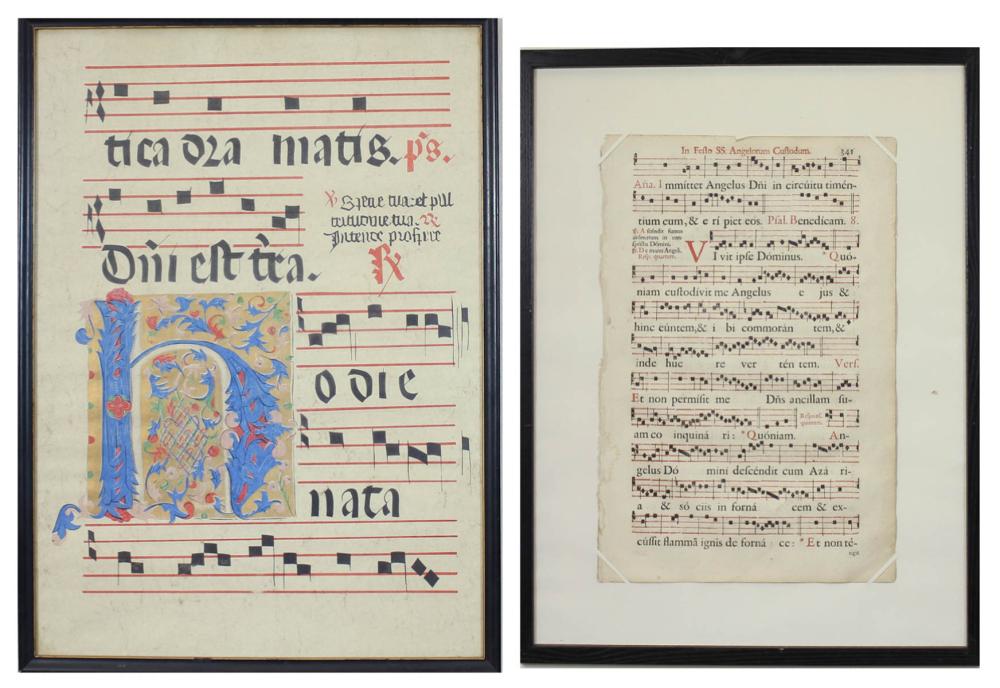 tica dra matis. p̃s.
℣ Specie tua: et pul
Intende prospere
Dñi est t̃ra. R
H
odie
nata
In Festo SS. Angelorum Custodum. 341
Aña. Immíttet Angelus Dñi in circúitu timén-
tium eum, & e rí piet eos. Psal. Benedicam. 8.
VIvit ipse Dóminus. *Quó-
Resp. quartum.
niam custodívit me Angelus e jus &
hinc eúntem, & i bi commorán tem, &
inde huc re ver tén tem. Vers.
Et non permísit me Dñs ancíllam su-
am co inquiná ri: *Quóniam. An-
gelus Dó mini descéndit cum Azá ri-
a & só ciis in forná cem & ex-
cússit flammã ignis de forná ce: *Et non té-
tigit